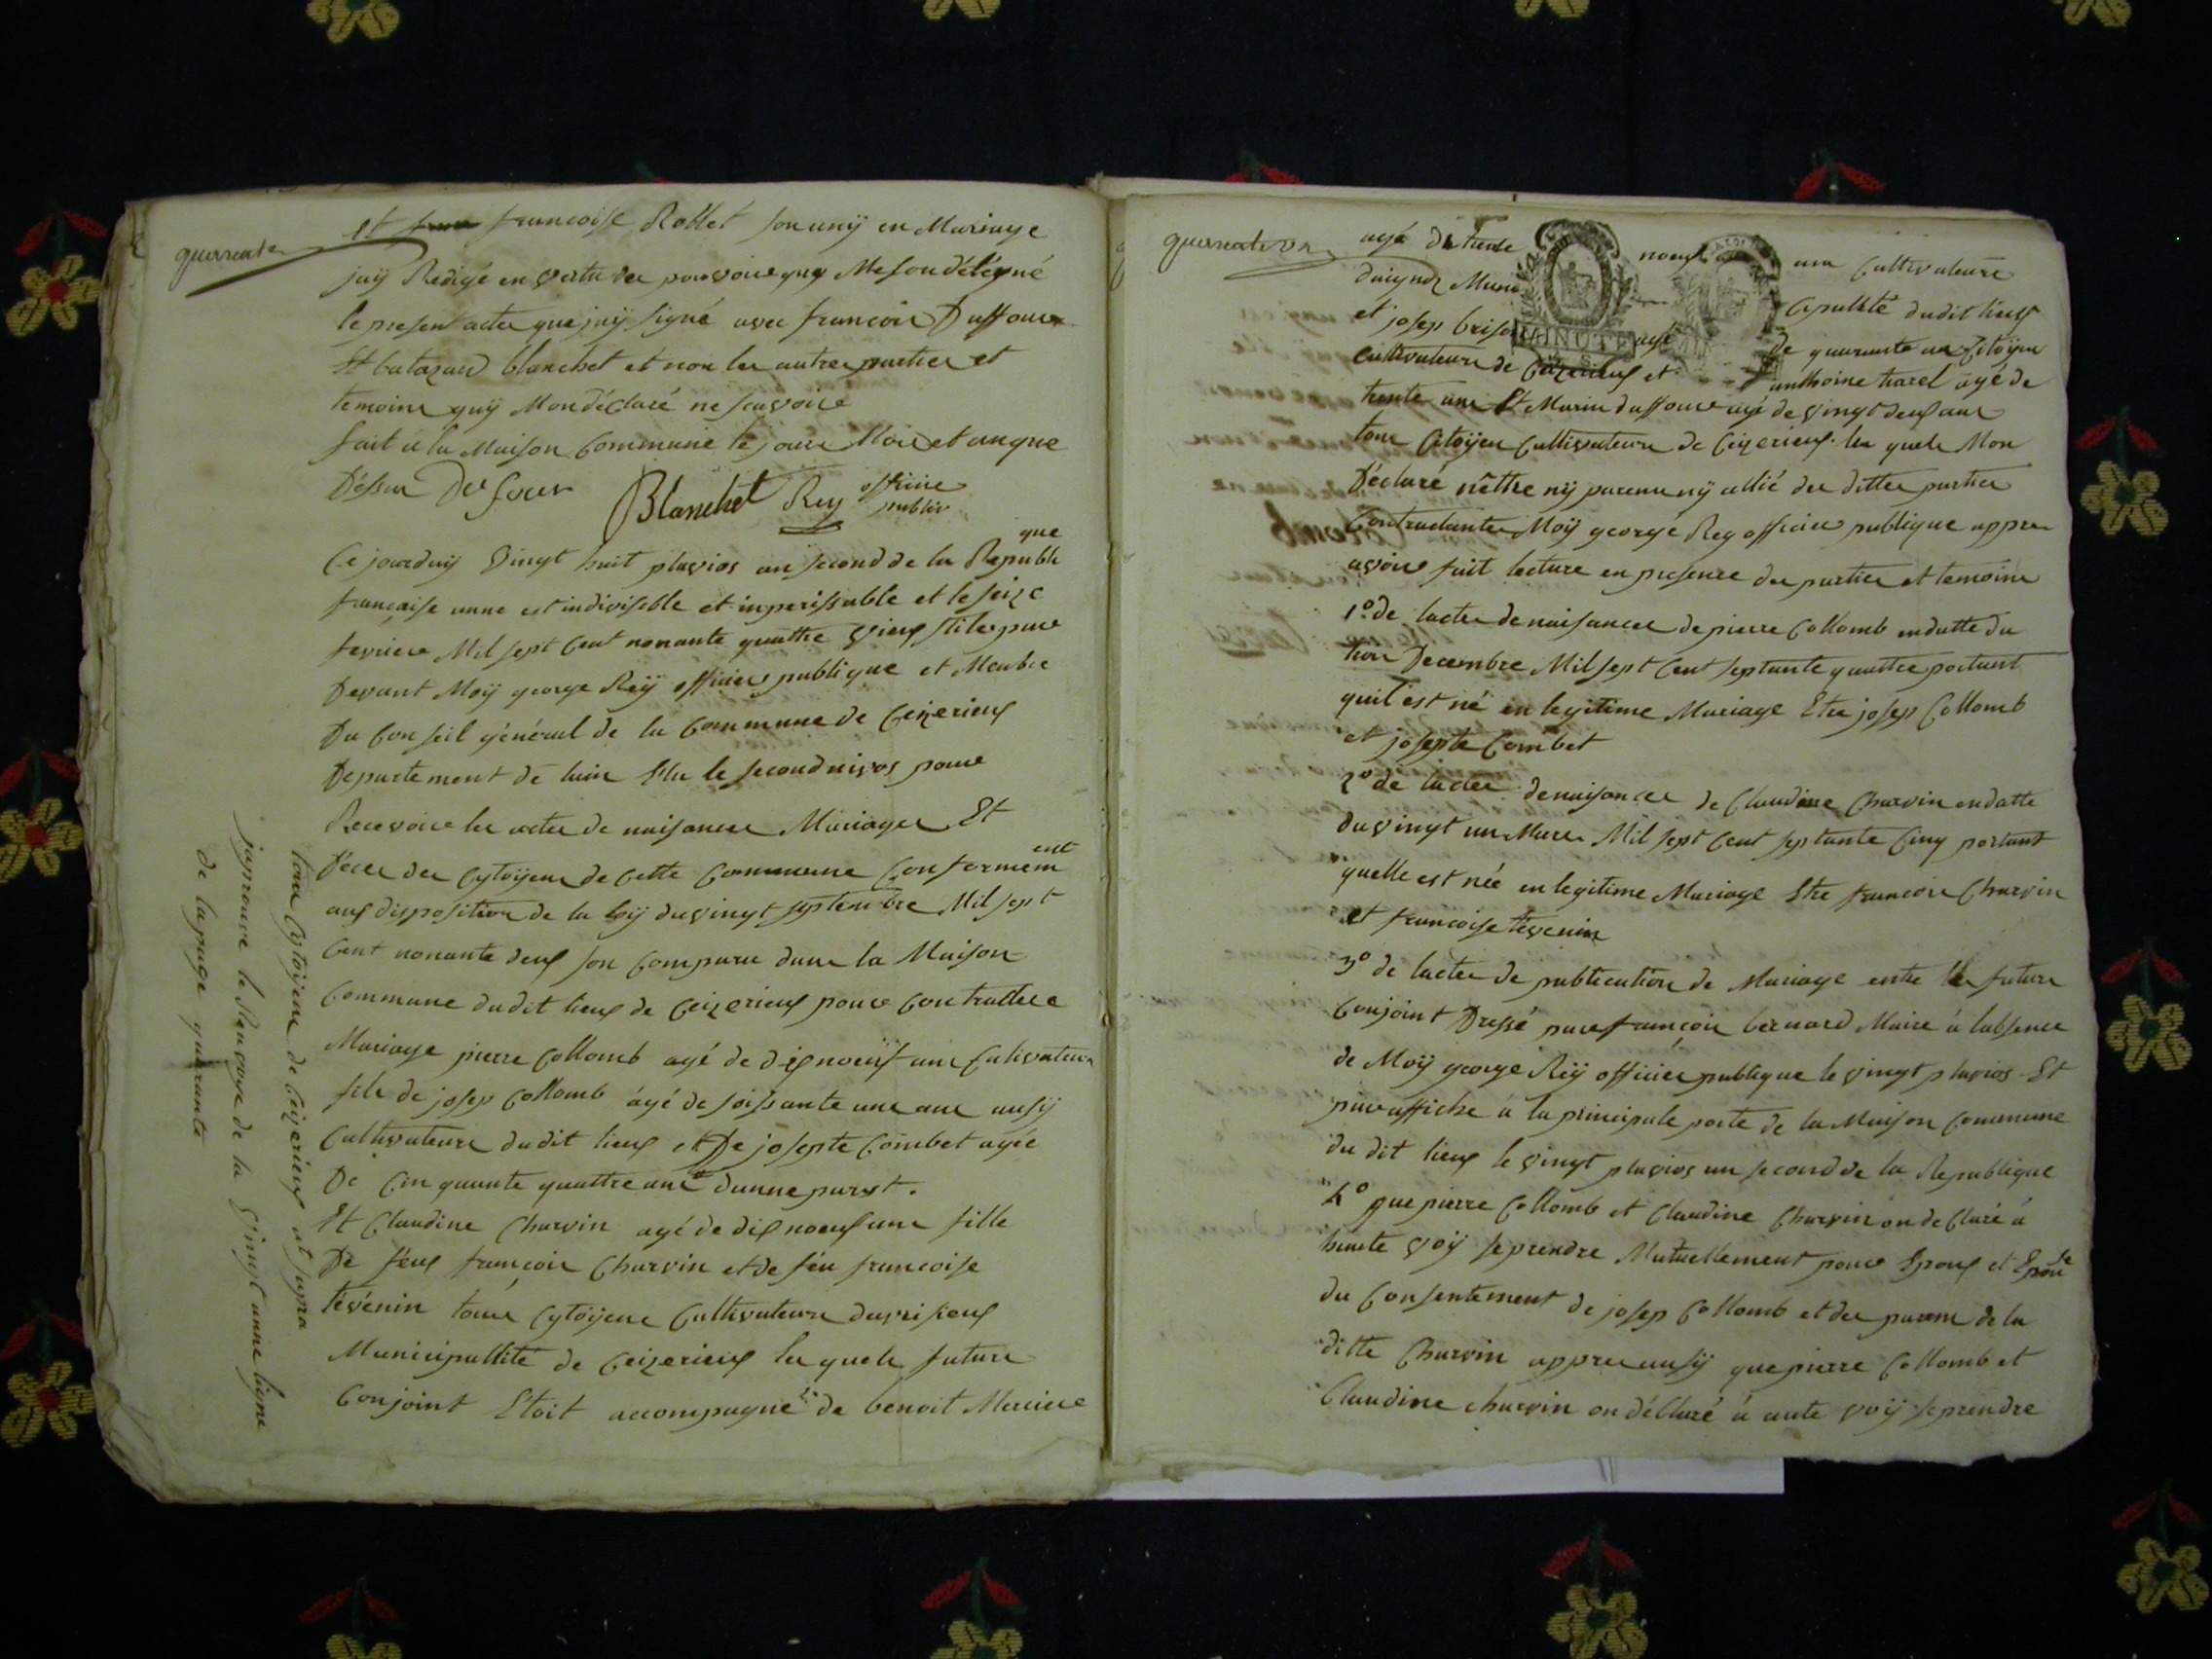 quarente
et francoise Rollet son unij en Mariage
jaij Redigé en vertu des pouvoire quy Me son délégué
le presen acte que jaij signé avec francois Duffour
Et batazard blanchet et non les autre parties et
temoins quij Mon déclaré ne scavoir
fait á la Maison Commune le jour Mois et an que
Dessus Dufour Blanchet Rey officie public
Ce jourduij vingt huit pluvios an second de la Republique
francaise unne est indivisible et imperissable et le seize
fevrier Mil sept Cent nonante quattre vieux stile par
Devant Moij george Reij officier publique et Menbre
Du Conseil général de la Commune de Ceizerieux
Departement de lain Elu le second nivos pour
Recevoir les actes de naisance Mariages Et
Déces des Cytoijens de Cette Commune Conformément
aux disposition de la loij du vingt septembre Mil sept
Cent nonante deux son Comparu dans la Maison
Commune dudit lieux de Ceizerieux pour Contracter
Mariage pierre Collomb agé de dix noeuf ans Cultivateur
fils de josep Collomb agé de soissante une ans ausij
Cultivateur dudit lieux et De josepte Combet agée
De Cinquante quattre ans dunne parst.
Et Claudine Charvin agé de dix noeuf ans fille
De féux francois Charvin et de féu francoise
tévénin tous Cytoijens Cultivateurs
Municipallité de Ceizerieux les quels futurs
Conjoint Etoit accompagné de benoit Merciere
tous Cytoijens de Ceizerieux at supra
japrouve le Renvoye de la vingt unne ligne
de la page quarante
quarente un
agé de trente noeuf ans Cultivateur
Mun icipallité dudit lieux
et josep brison agé de quarante un Citoijen
Cultivateur de Ceizerieux et anthoine tarel agé de
trente ans Et Marin duffour agé de vingt deux ans
tous Citoijen Cultivateurs de Ceizerieux les quels Mon
Déclaré nettre nij parens nij allié des dittes parties
Contractantes Moij george Rey officier publique appres
avoir fait lecture en presence des parties et temoins
1o. de lacte de naisance de pierre Collomb en datte du
trois Decembre Mil sept Cent septante quattre portant
quil est né en legitime Mariage Etre josep Collomb
et josepte Combet
2o de lacte de naisance de Claudine Charvin en datte
du vingt un Mars Mil sept Cent septante Cinq portant
quelle est née en legitime Mariage Etre francois Charvin
et francoise tévenin
3o de lacte de publication de Mariage entre les futurs
Conjoint Dressé par francois bernard Maire á labsence
de Moij george Reij officier publique le vingt pluvios Et
par affiche á la principale porte de la Maison Commune
du dit lieux le vingt pluvios an second de la Republique
4o que pierre Collomb et Claudine Charvin on declaré á
haute voij se prendre Mutuellement pour Epoux et Epouse
du Consentement de josep Collomb et des parens de la
ditte Charvin appres ausij que pierre Collomb et
Claudine charvin on déclaré á aute voij se prendre